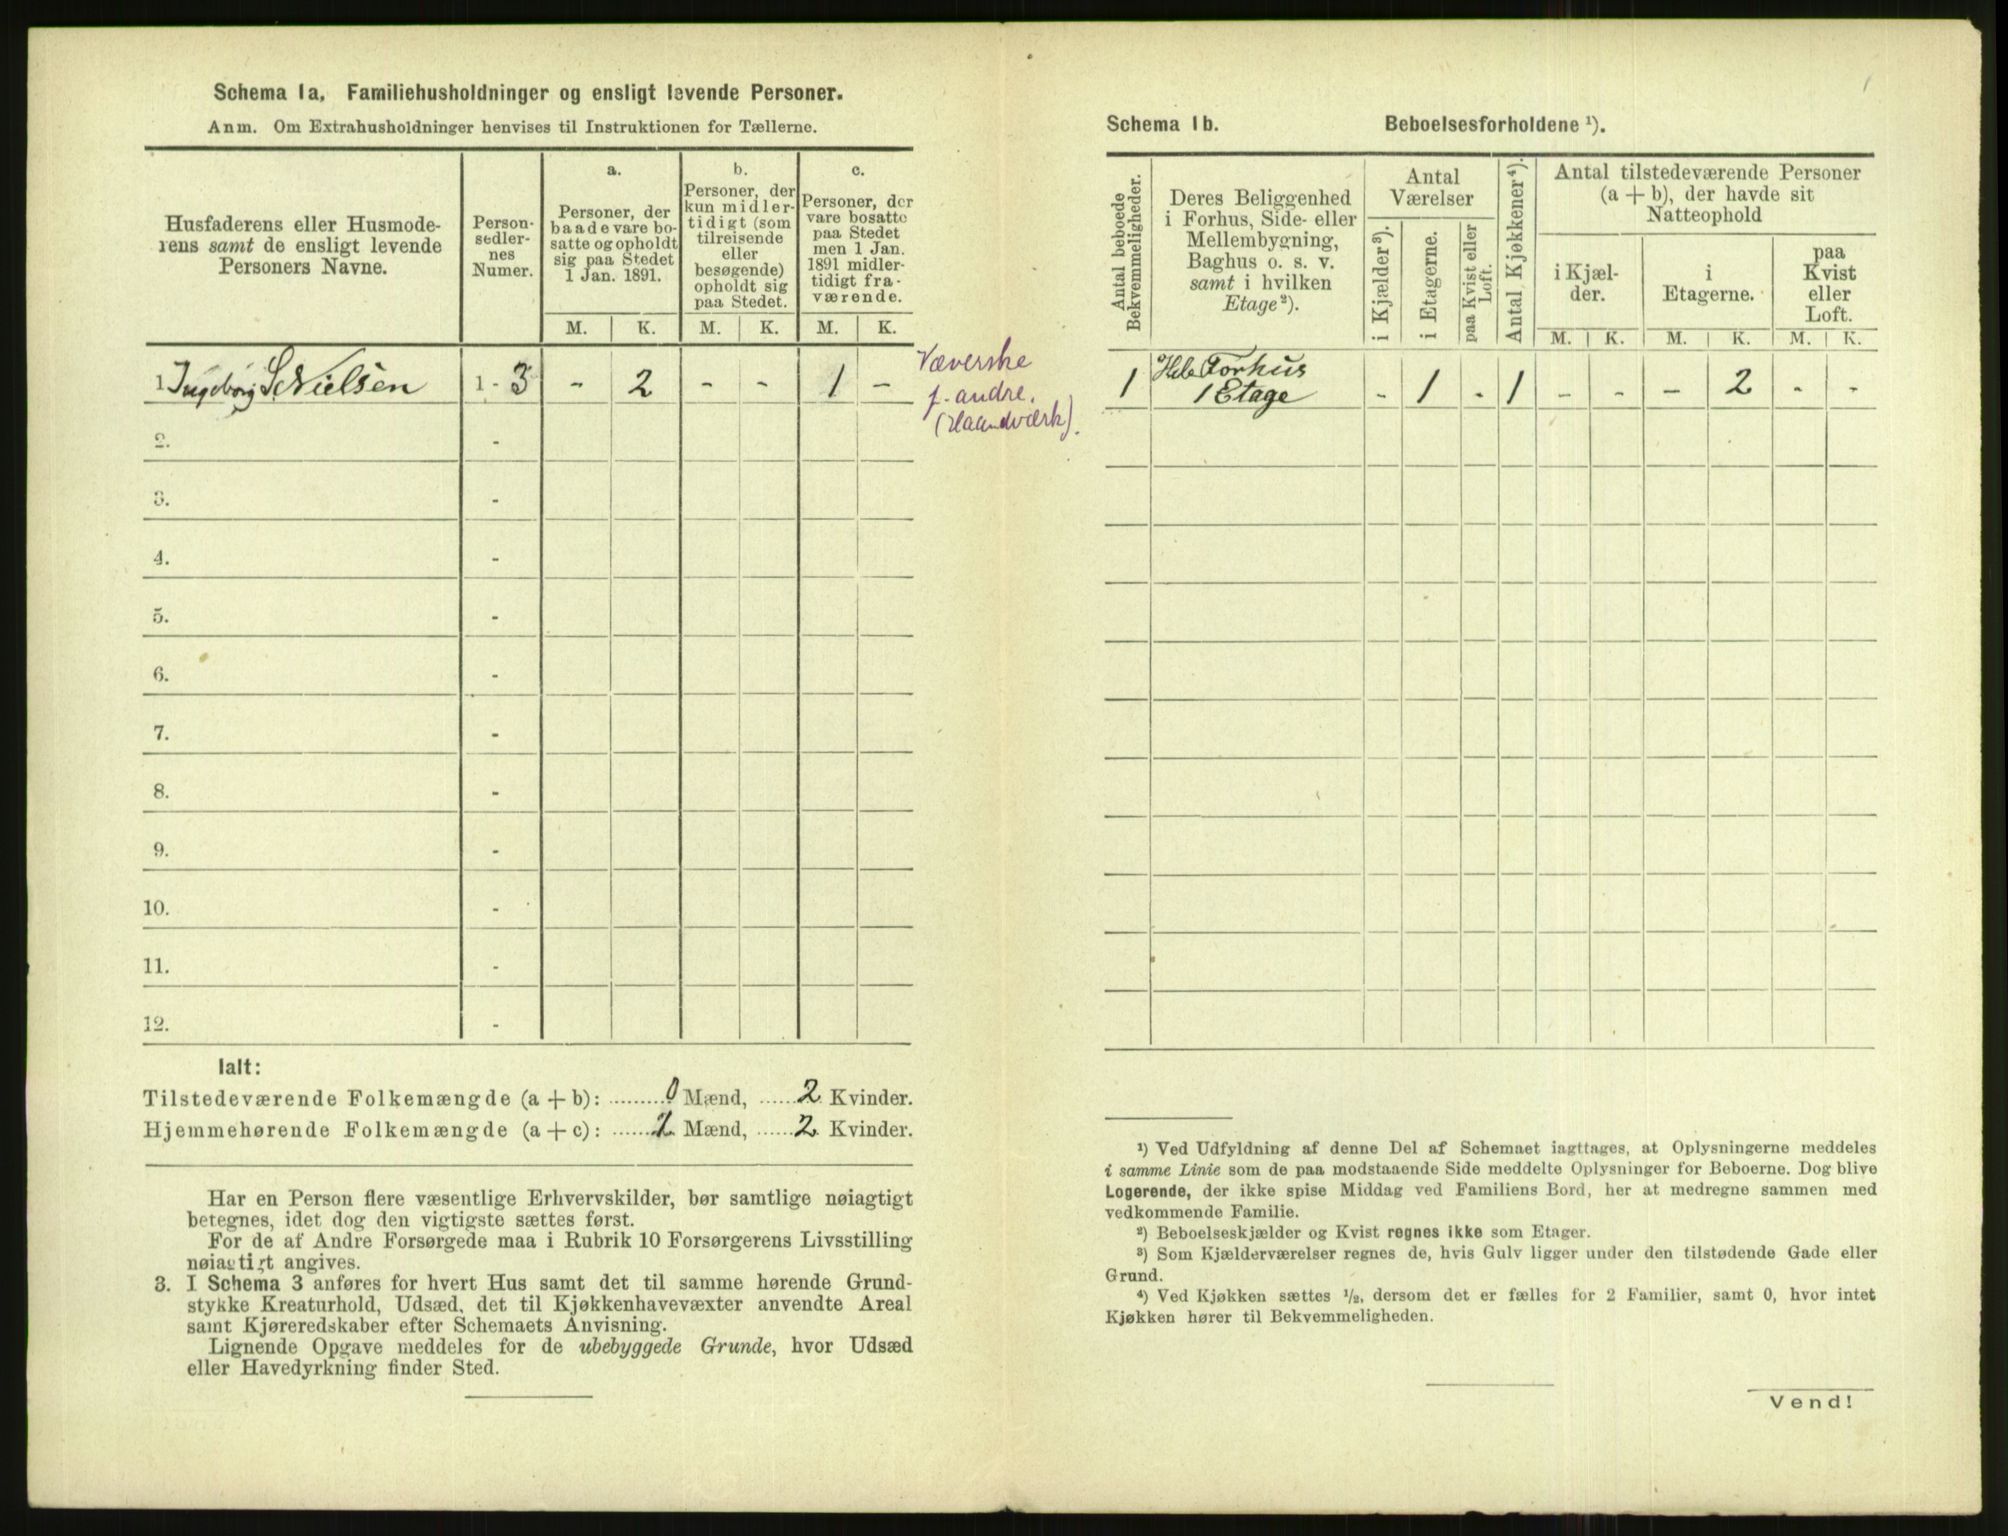 Schema 1a. Familiehusholdninger og ensligt levende Personer.
Anm. Om Extrahusholdninger henvises til Instruktionen for Tællerne.
Husfaderens eller Husmode-
rens samt de ensligt levende
Personers Navne.
Person-
sedler-
nes
Numer.
a.
Personer, der
baade vare bo-
satte og opholdt
sig paa Stedet
1 Jan. 1891.
b.
Personer, der
kun midler-
tidigt (som
tilreisende
eller
besøgende)
opholdt sig
paa Stedet.
c.
Personer, der
vare bosatte
paa Stedet
men 1 Jan.
1891 midler-
tidigt fra-
værende.
M. K. M. K. M. K.
1. Ingeborg S. Nielsen 1 - 3 - 2 - - 1 -
Væverske
f. andre.
(Haandværk).
2. -
3. -
4. -
5. -
6. -
7. -
8. -
9. -
10. -
11. -
12. -
Ialt:
Tilstedeværende Folkemængde (a + b): 0 Mænd, 2 Kvinder.
Hjemmehørende Folkemængde (a + c): 1 Mænd, 2 Kvinder.
Har en Person flere væsentlige Erhvervskilder, bør samtlige nøiagtigt
betegnes, idet dog den vigtigste sættes først.
For de af Andre Forsørgede maa i Rubrik 10 Forsørgerens Livsstilling
nøiagtigt angives.
3. I Schema 3 anføres for hvert Hus samt det til samme hørende Grund-
stykke Kreaturhold, Udsæd, det til Kjøkkenhavevæxter anvendte Areal
samt Kjøreredskaber efter Schemaets Anvisning.
Lignende Opgave meddeles for de ubebyggede Grunde, hvor Udsæd
eller Havedyrkning finder Sted.
Schema 1b. Beboelsesforholdene ¹).
Antal beboede
Bekvemmeligheder.
Deres Beliggenhed
i Forhus, Side- eller
Mellembygning,
Baghus o. s. v.
samt i hvilken
Etage²).
Antal
Værelser
i Kjælder³).
i Etagerne.
paa Kvist eller
Loft.
Antal Kjøkkener⁴).
Antal tilstedeværende Personer
(a + b), der havde sit
Natteophold
i Kjæl-
der.
i
Etagerne.
paa
Kvist
eller
Loft.
M. K. M. K. M. K.
1 Hele Forhus
1 Etage - 1 - 1 - - - 2 - -
¹) Ved Udfyldning af denne Del af Schemaet iagttages, at Oplysningerne meddeles
i samme Linie som de paa modstaaende Side meddelte Oplysninger for Beboerne. Dog blive
Logerende, der ikke spise Middag ved Familiens Bord, her at medregne sammen med
vedkommende Familie.
²) Beboelseskjælder og Kvist regnes ikke som Etager.
³) Som Kjælderværelser regnes de, hvis Gulv ligger under den tilstødende Gade eller
Grund.
⁴) Ved Kjøkken sættes ½, dersom det er fælles for 2 Familier, samt 0, hvor intet
Kjøkken hører til Bekvemmeligheden.
Vend!